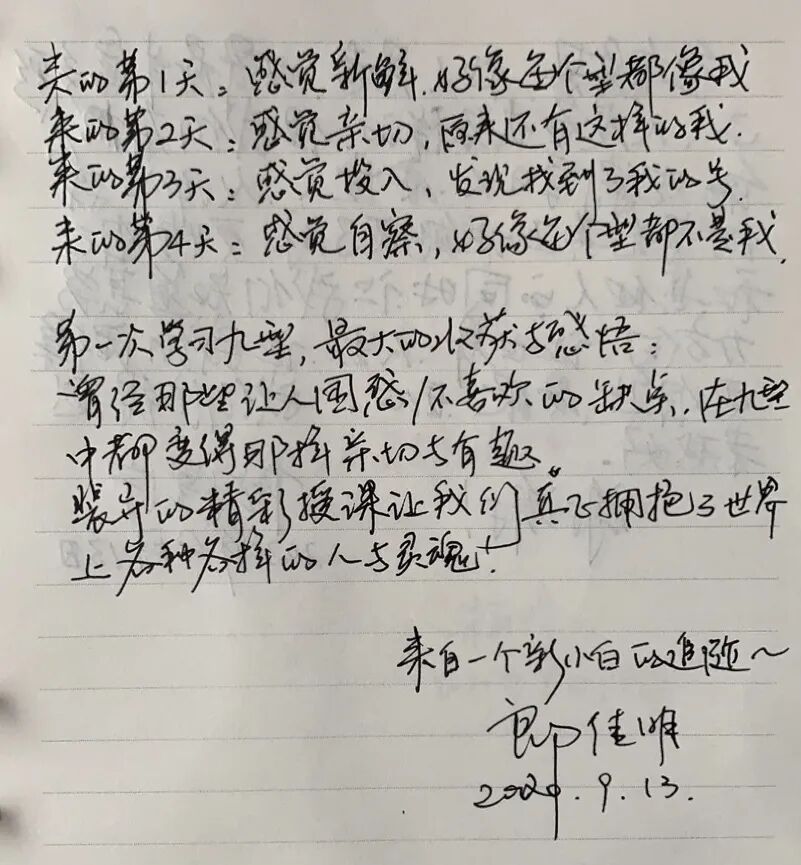 来的第1天：感觉新鲜，好像每个型都像我
来的第2天：感觉亲切，原来还有这样的我.
来的第3天：感觉投入，发现找到了我的号.
来的第4天：感觉自察，好像每个型都不是我.
第一次学习九型，最大的收获与感悟：
曾经那些让人困惑/不喜欢的缺点，在九型
中都变得那样亲切与有趣。
裴导的精彩授课让我们真正拥抱了世界
上各种各样的人与灵魂！
来自一个新小白的追随～
郎佳
2020.9.13.